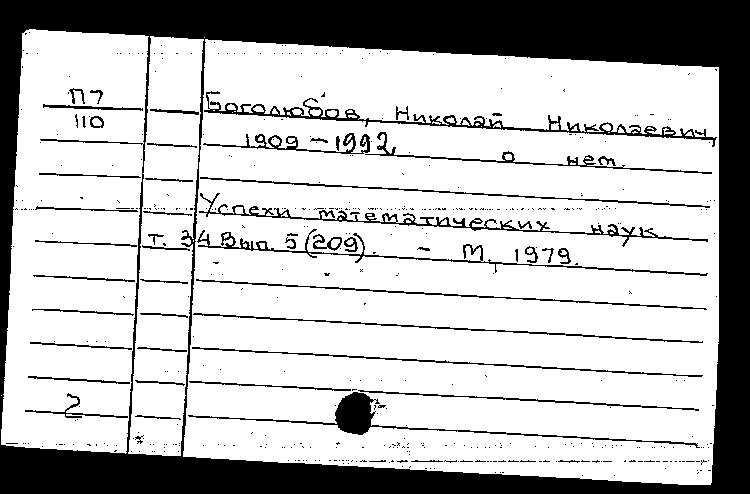 П7
110
Боголюбов, Николай Николаевич,
1909-1992, о нем.
Успехи математических наук
т. 34 Вып. 5 (209). - М., 1979.
2